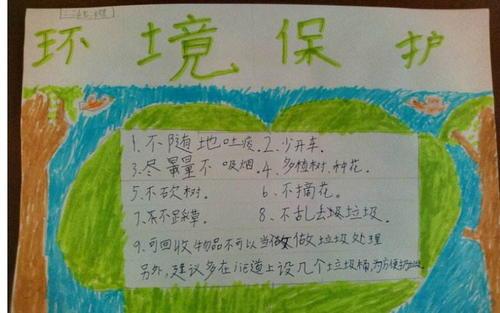 环境保护
1.不随地吐痰.2.少开车.
3.尽量不吸烟.4.多植树、种花。
5.不砍树. 6.不摘花。
7.不踩草. 8.不乱丢垃圾.
9.可回收物品不可以当做垃圾处理
另外,建议多在街道上设几个垃圾桶,为方便扔垃圾.